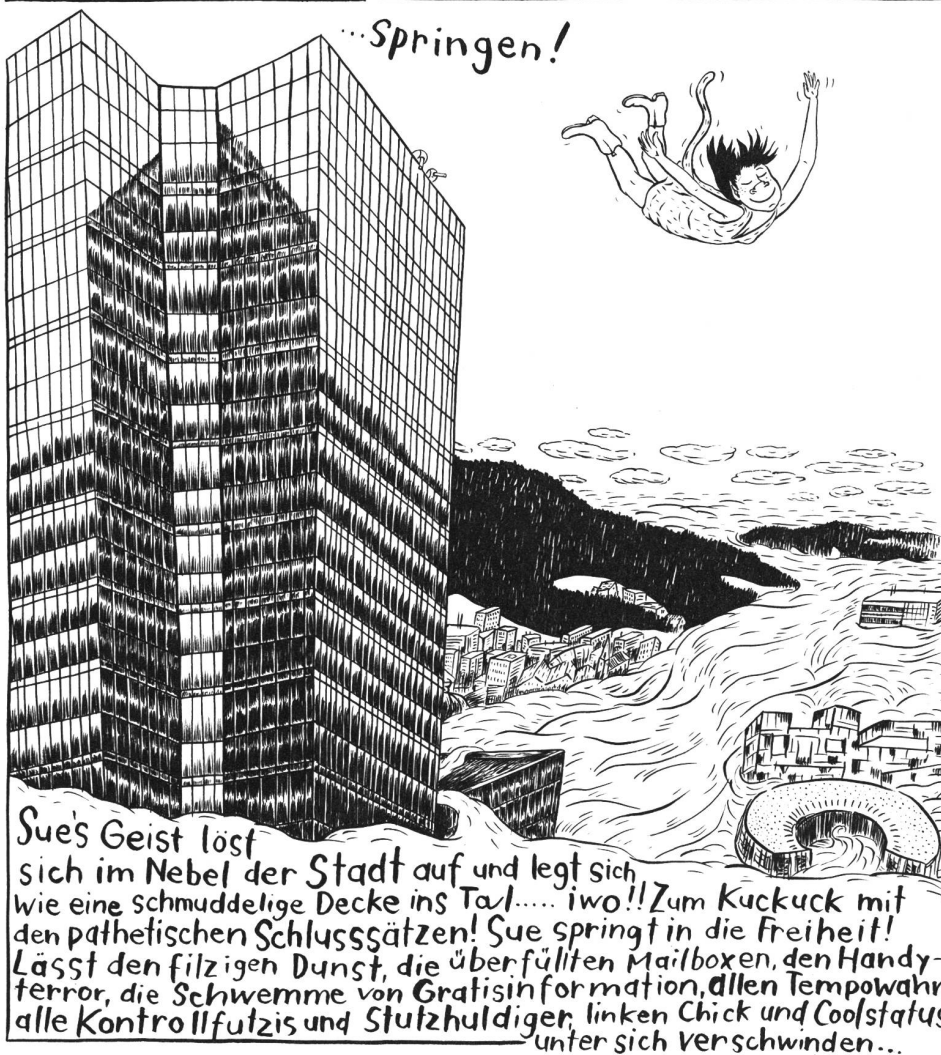 ...springen!
Sue's Geist löst
sich im Nebel der Stadt auf und legt sich
wie eine schmuddelige Decke ins Tal..... iwo!! Zum Kuckuck mit
den pathetischen Schlusssätzen! Sue springt in die Freiheit!
Lässt den filzigen Dunst, die überfüllten Mailboxen, den Handy-
terror, die Schwemme von Gratisinformation, allen Tempowahn
alle Kontrollfutzis und Stutzhuldiger, linken Chick und Coolstatus
unter sich verschwinden...